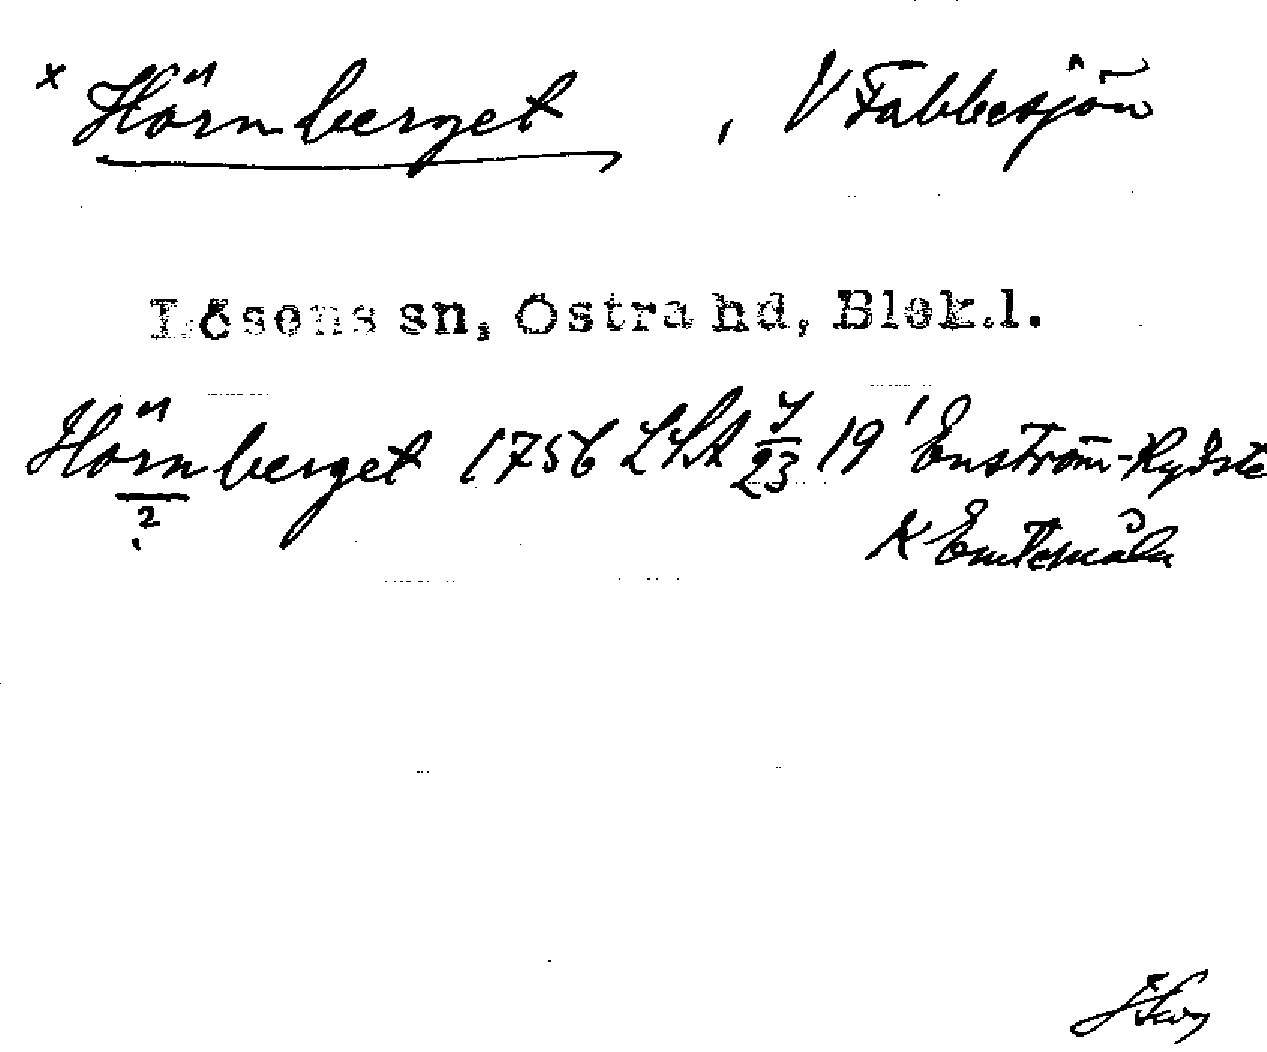 x Hörnberget, V Fäbbesjön
Lösens sn, Östra hd, Blek.l.
Hörnberget 1756 LSA 7/23 19 'Enström-Rydste
?
K Emtemåla